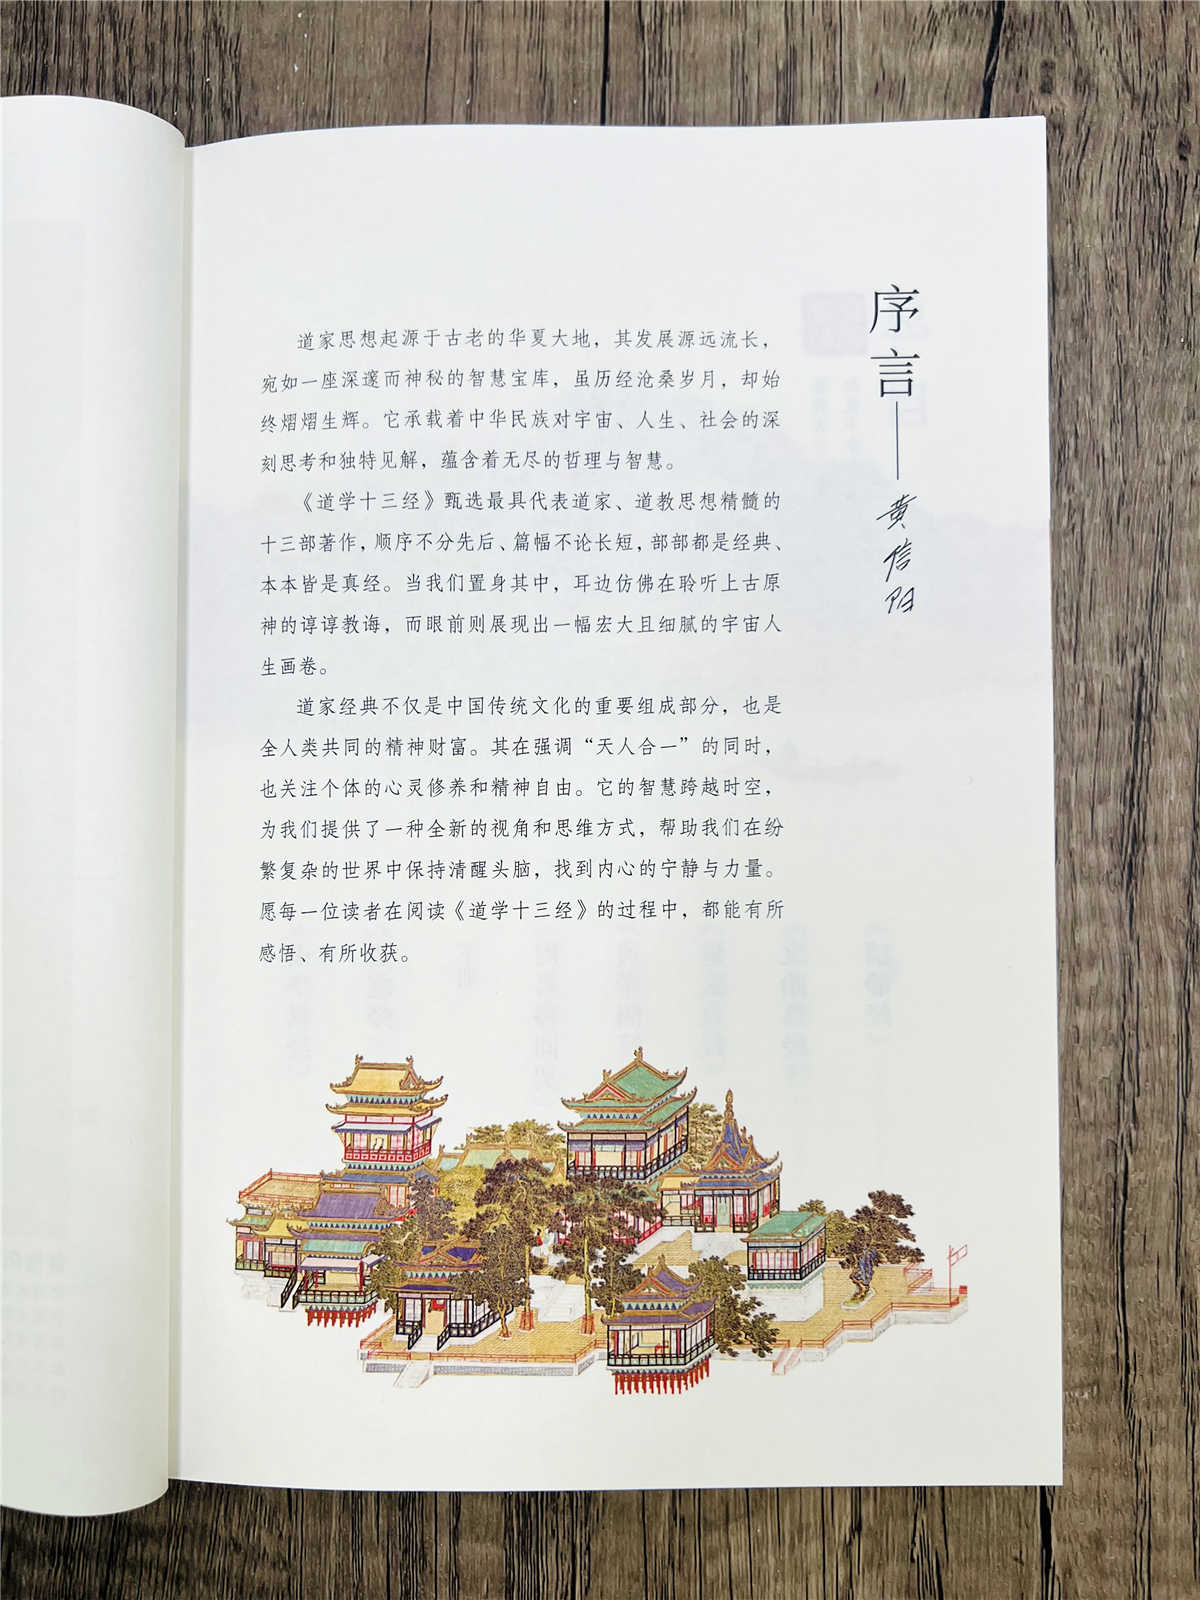 序言——
黄信阳
道家思想起源于古老的华夏大地，其发展源远流长，
宛如一座深邃而神秘的智慧宝库，虽历经沧桑岁月，却始
终熠熠生辉。它承载着中华民族对宇宙、人生、社会的深
刻思考和独特见解，蕴含着无尽的哲理与智慧。
《道学十三经》甄选最具代表道家、道教思想精髓的
十三部著作，顺序不分先后、篇幅不论长短，部部都是经典、
本本皆是真经。当我们置身其中，耳边仿佛在聆听上古原
神的谆谆教诲，而眼前则展现出一幅宏大且细腻的宇宙人
生画卷。
道家经典不仅是中国传统文化的重要组成部分，也是
全人类共同的精神财富。其在强调“天人合一”的同时，
也关注个体的心灵修养和精神自由。它的智慧跨越时空，
为我们提供了一种全新的视角和思维方式，帮助我们在纷
繁复杂的世界中保持清醒头脑，找到内心的宁静与力量。
愿每一位读者在阅读《道学十三经》的过程中，都能有所
感悟、有所收获。